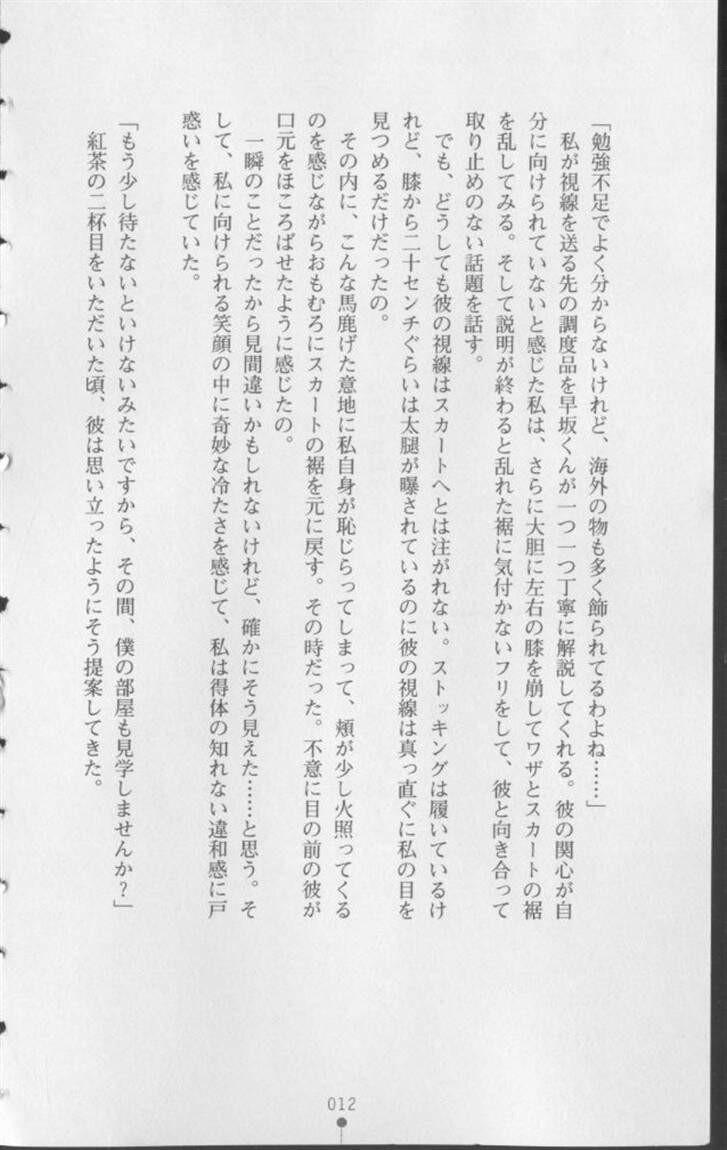 「勉強不足でよく分からないけれど、海外の物も多く飾られてるわよね……」
私が視線を送る先の調度品を早坂くんが一つ一つ丁寧に解説してくれる。彼の関心が自
分に向けられていないと感じた私は、さらに大胆に左右の膝を崩してワザとスカートの裾
を乱してみる。そして説明が終わると乱れた裾に気付かないフリをして、彼と向き合って
取り止めのない話題を話す。
でも、どうしても彼の視線はスカートへとは注がれない。ストッキングは履いているけ
れど、膝から二十センチぐらいは太腿が曝されているのに彼の視線は真っ直ぐに私の目を
見つめるだけだったの。
その内に、こんな馬鹿げた意地に私自身が恥じらってしまって、頬が少し火照ってくる
のを感じながらおもむろにスカートの裾を元に戻す。その時だった。不意に目の前の彼が
口元をほころばせたように感じたの。
一瞬のことだったから見間違いかもしれないけれど、確かにそう見えた……と思う。そ
して、私に向けられる笑顔の中に奇妙な冷たさを感じて、私は得体の知れない違和感に戸
惑いを感じていた。
「もう少し待たないといけないみたいですから、その間、僕の部屋も見学しませんか？」
紅茶の二杯目をいただいた頃、彼は思い立ったようにそう提案してきた。
012